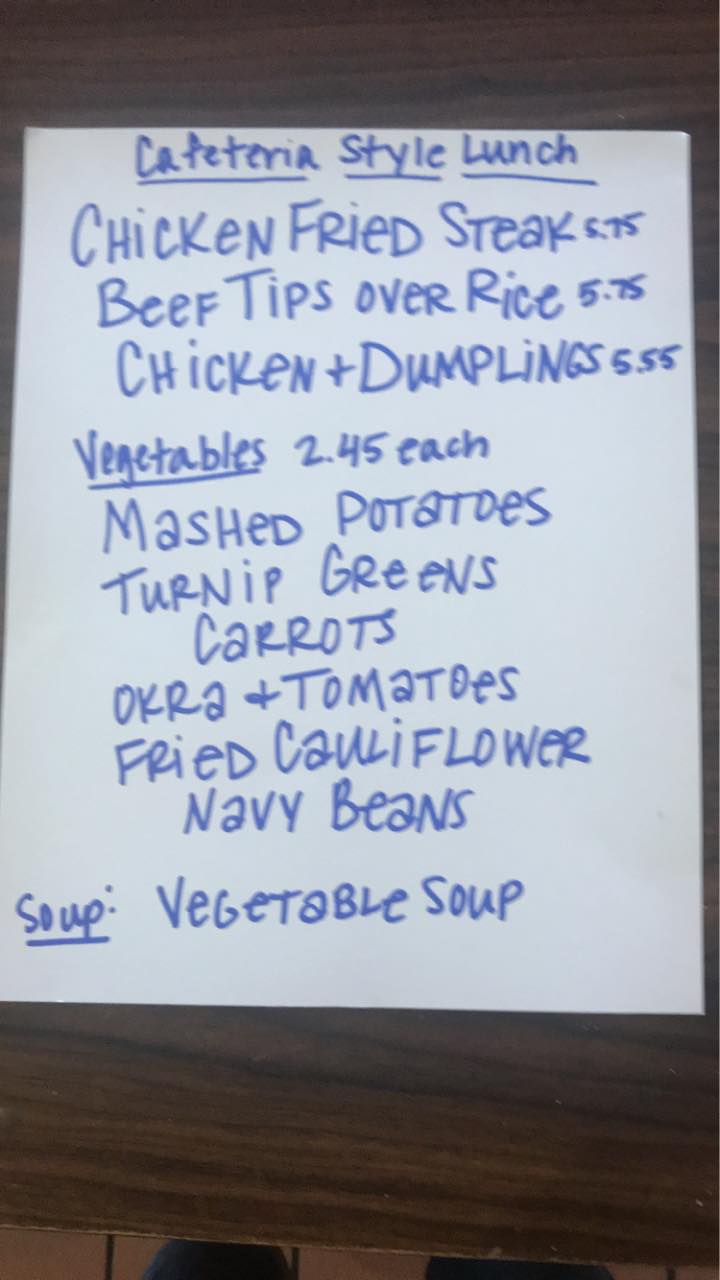 Cafeteria Style Lunch
CHiCKEN FRiED STEaK 5.75
BEEF TiPS OVER RiCE 5.75
CHiCKEN + DUMPLiNGS 5.55
Vegetables 2.45 each
MaSHED POTaTOES
TURNiP GREENS
CaRROTS
OKRa + TOMaTOES
FRiED CaULiFLOWER
NaVY BEaNS
Soup: VEGETaBLE SOUP